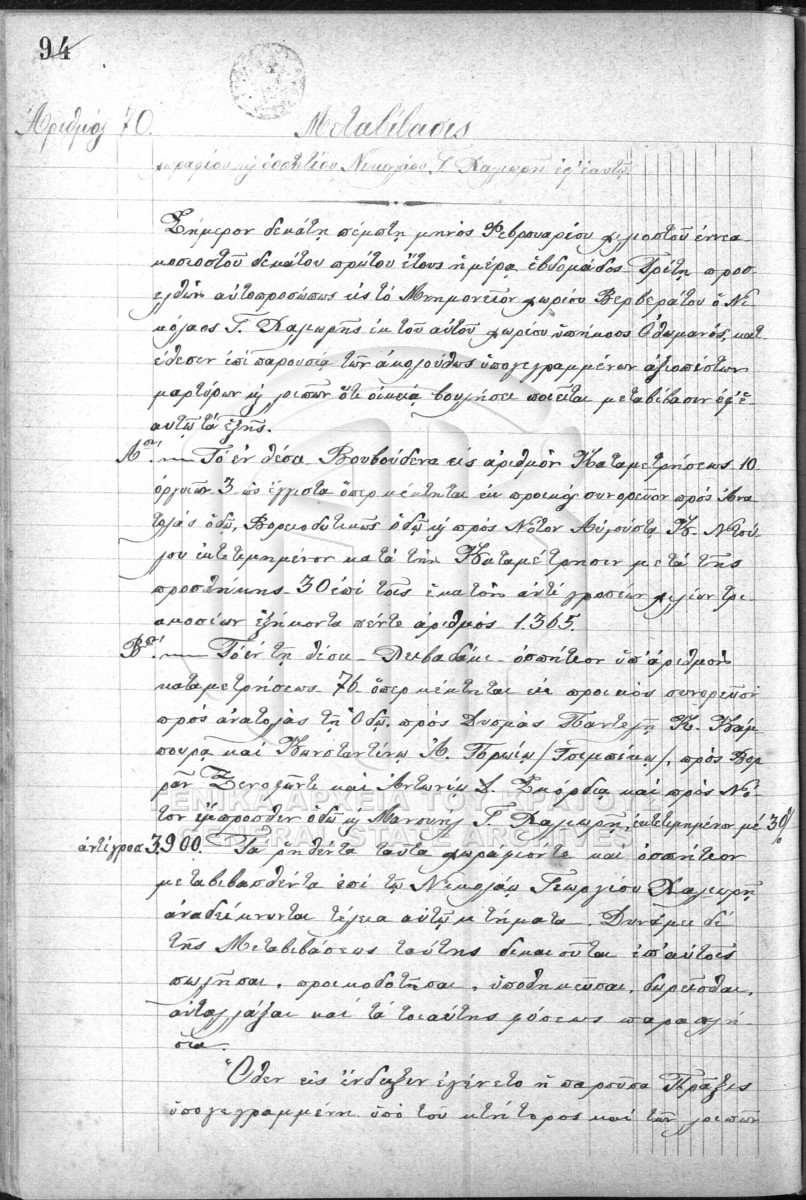 94
Ἀριθμός 70. Μεταβίβασις
χωραφίου κỳ ὁσπητίου Νικολάου Γ. Καλιωρῆ ἐφ' ἑαυτῷ
Σήμερον δεκάτῃ πέμπτῃ μηνός Φεβρουαρίου χιλιοστοῦ ἐννεα-
κοσιοστοῦ δεκάτου πρώτου ἔτους ἡμέρᾳ ἑβδομάδος Τρίτῃ προσ-
ελθών αὐτοπροσώπως εἰς τό Μνημονεῖον χωρίου Βερβεράτου ὁ Νι-
κόλαος Γ. Καλιωρῆς ἐκ τοῦ αὐτοῦ χωρίου ὑπήκοος Ὀθωμανός, κατ-
έθεσεν ἐπί παρουσίᾳ τῶν ἀκολούθως ὑπογεγραμμένων ἀξιοπίστων
μαρτύρων κỳ λοιπῶν ὅτι οἰκείᾳ βουλήσει ποιεῖται μεταβίβασιν ἐφ' ἑ-
αυτῷ τά ἑξῆς.
Αον! Τό ἐν θέσει Βουβούδενα εἰς ἀριθμόν Καταμετρήσεως 10
ὀργυιῶν 3 ὡς ἔγγιστα ὅπερ κέκτηται ἐκ προικός συνορευον πρός Ἀνα
τολάς ὁδῷ, Βορειοδυτικῶς ὁδῷ κỳ πρός Νότον Αὐγούστῃ Κ. Ντού-
λου ἐκτετιμημένον κατά τήν Καταμέτρησιν μετά τῆς
προσθήκης 30 ἐπί τοῖς ἑκατόν ἀντί γροσίων χιλίων τρι-
ακοσίων ἑξήκοντα πέντε ἀριθμός 1.365.
Βον! Τό ἐν τῇ θέσει Λειβαδάκι ὁσπήτιον ὑπ' ἀριθμόν
καταμετρήσεως 76 ὅπερ κέκτηται ἐκ προικός συνορεῦον
πρός ἀνατολάς τῇ Ὁδῷ, πρός Δυσμάς Παντελῇ Κ. Κάμ-
πουρᾳ καί Κωνσταντίνῳ Α. /Τσιμπίκῳ/, πρός Βορ-
ρᾶν Ξενοφῶντι καί Ἀντωνίῳ Δ. Σκόρδια καί πρός Νό-
τον ἔμπροσθεν ὁδῷ κỳ Μανουήλ Γ. Καλιωρῆ, ἐκτετιμημένον μέ 30%
ἀντί γροσ. 3.900. Τά ῥηθέντα ταῦτα χωράφιόν τε καί ὁσπήτιον
μεταβιβασθέντα ἐπί τῷ Νικολάῳ Γεωργίου Καλιωρῇ
ἀναδείκνυνται τέλεια αὐτῷ κτήματα. Δυνάμει δέ
τῆς Μεταβιβάσεως ταύτης δικαιοῦται ἐπ' αὐτοῖς
πωλῆσαι, προικοδοτῆσαι, ὑποθηκεῦσαι, δωρεῖσθαι,
ἀνταλλάξαι καί τά τοιαύτης φύσεως παραπλή-
σια.
Ὅθεν εἰς ἔνδειξιν ἐγένετο ἡ παροῦσα Πρᾶξις
ὑπογεγραμμένη ὑπό τοῦ κτήτορος καί τῶν λοιπῶν
ΓΕΝΙΚΑ ΑΡΧΕΙΑ ΤΟΥ ΚΡΑΤΟΥΣ
GENERAL STATE ARCHIVES